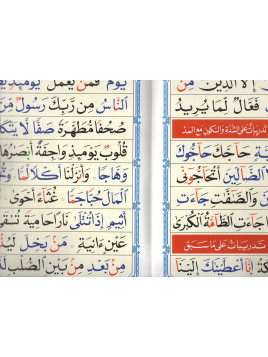 إِلَّا الَّذِينَ مِن
فَعَّالٌ لِّمَا يُرِيدُ
تدريبات على الشدة والسكون مع المد
حَاجَّكَ حَاجُّوكَ
الضَّالِّينَ أَتُحَاجُّونِّي
وَالصَّافَّاتِ جَاءَتِ
جَاءَتِ الطَّامَّةُ الْكُبْرَى
تدريبات على ما سبق
إِنَّا أَعْطَيْنَاكَ إِلَيْنَا
يَوْمَ فَمَن يَعْمَلْ يَوْمَئِذٍ
النَّاسُ مِن رَّبِّكَ رَسُولٌ مِّنَ
صُحُفًا مُّطَهَّرَةً صَفًّا لَّا
قُلُوبٌ يَوْمَئِذٍ وَاجِفَةٌ أَبْصَارُهَا
وَهَّاجًا وَأَنزَلْنَا أَكْلًا لَّمًّا
الْمَالَ حُبًّا جَمًّا غُثَاءً أَحْوَى
أَثِيمٍ إِذَا تُتْلَى نَارًا حَامِيَةً تُسْقَى
عَيْنٍ آنِيَةٍ مَن بَخِلَ
مِن بَعْدِ مِن بَيْنِ الصُّلْبِ